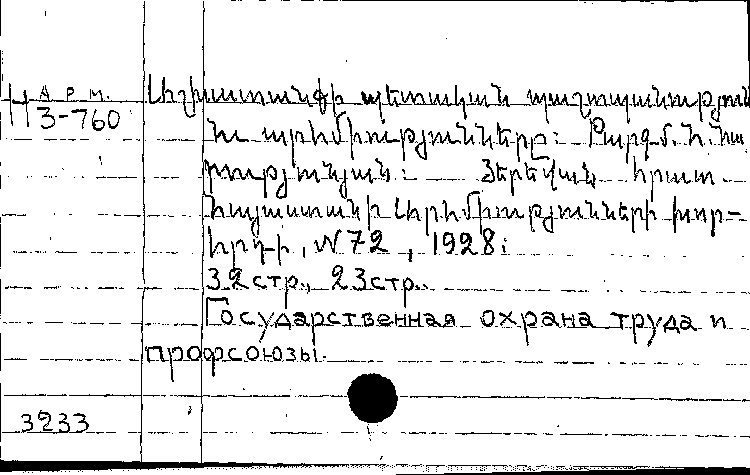 А Р М.
Н
3-760
պետական պաշտպանություն
եւ արհմիությունները։ Թարգմ. Ն. Հա
րությունյան։ Յերեվան, հրատ.
Հայաստանի Արհմիությունների խոր-
հրդի, № 72, 1928։
32 стр., 23 стр..
Государственная охрана труда и
профсоюзы.
3233